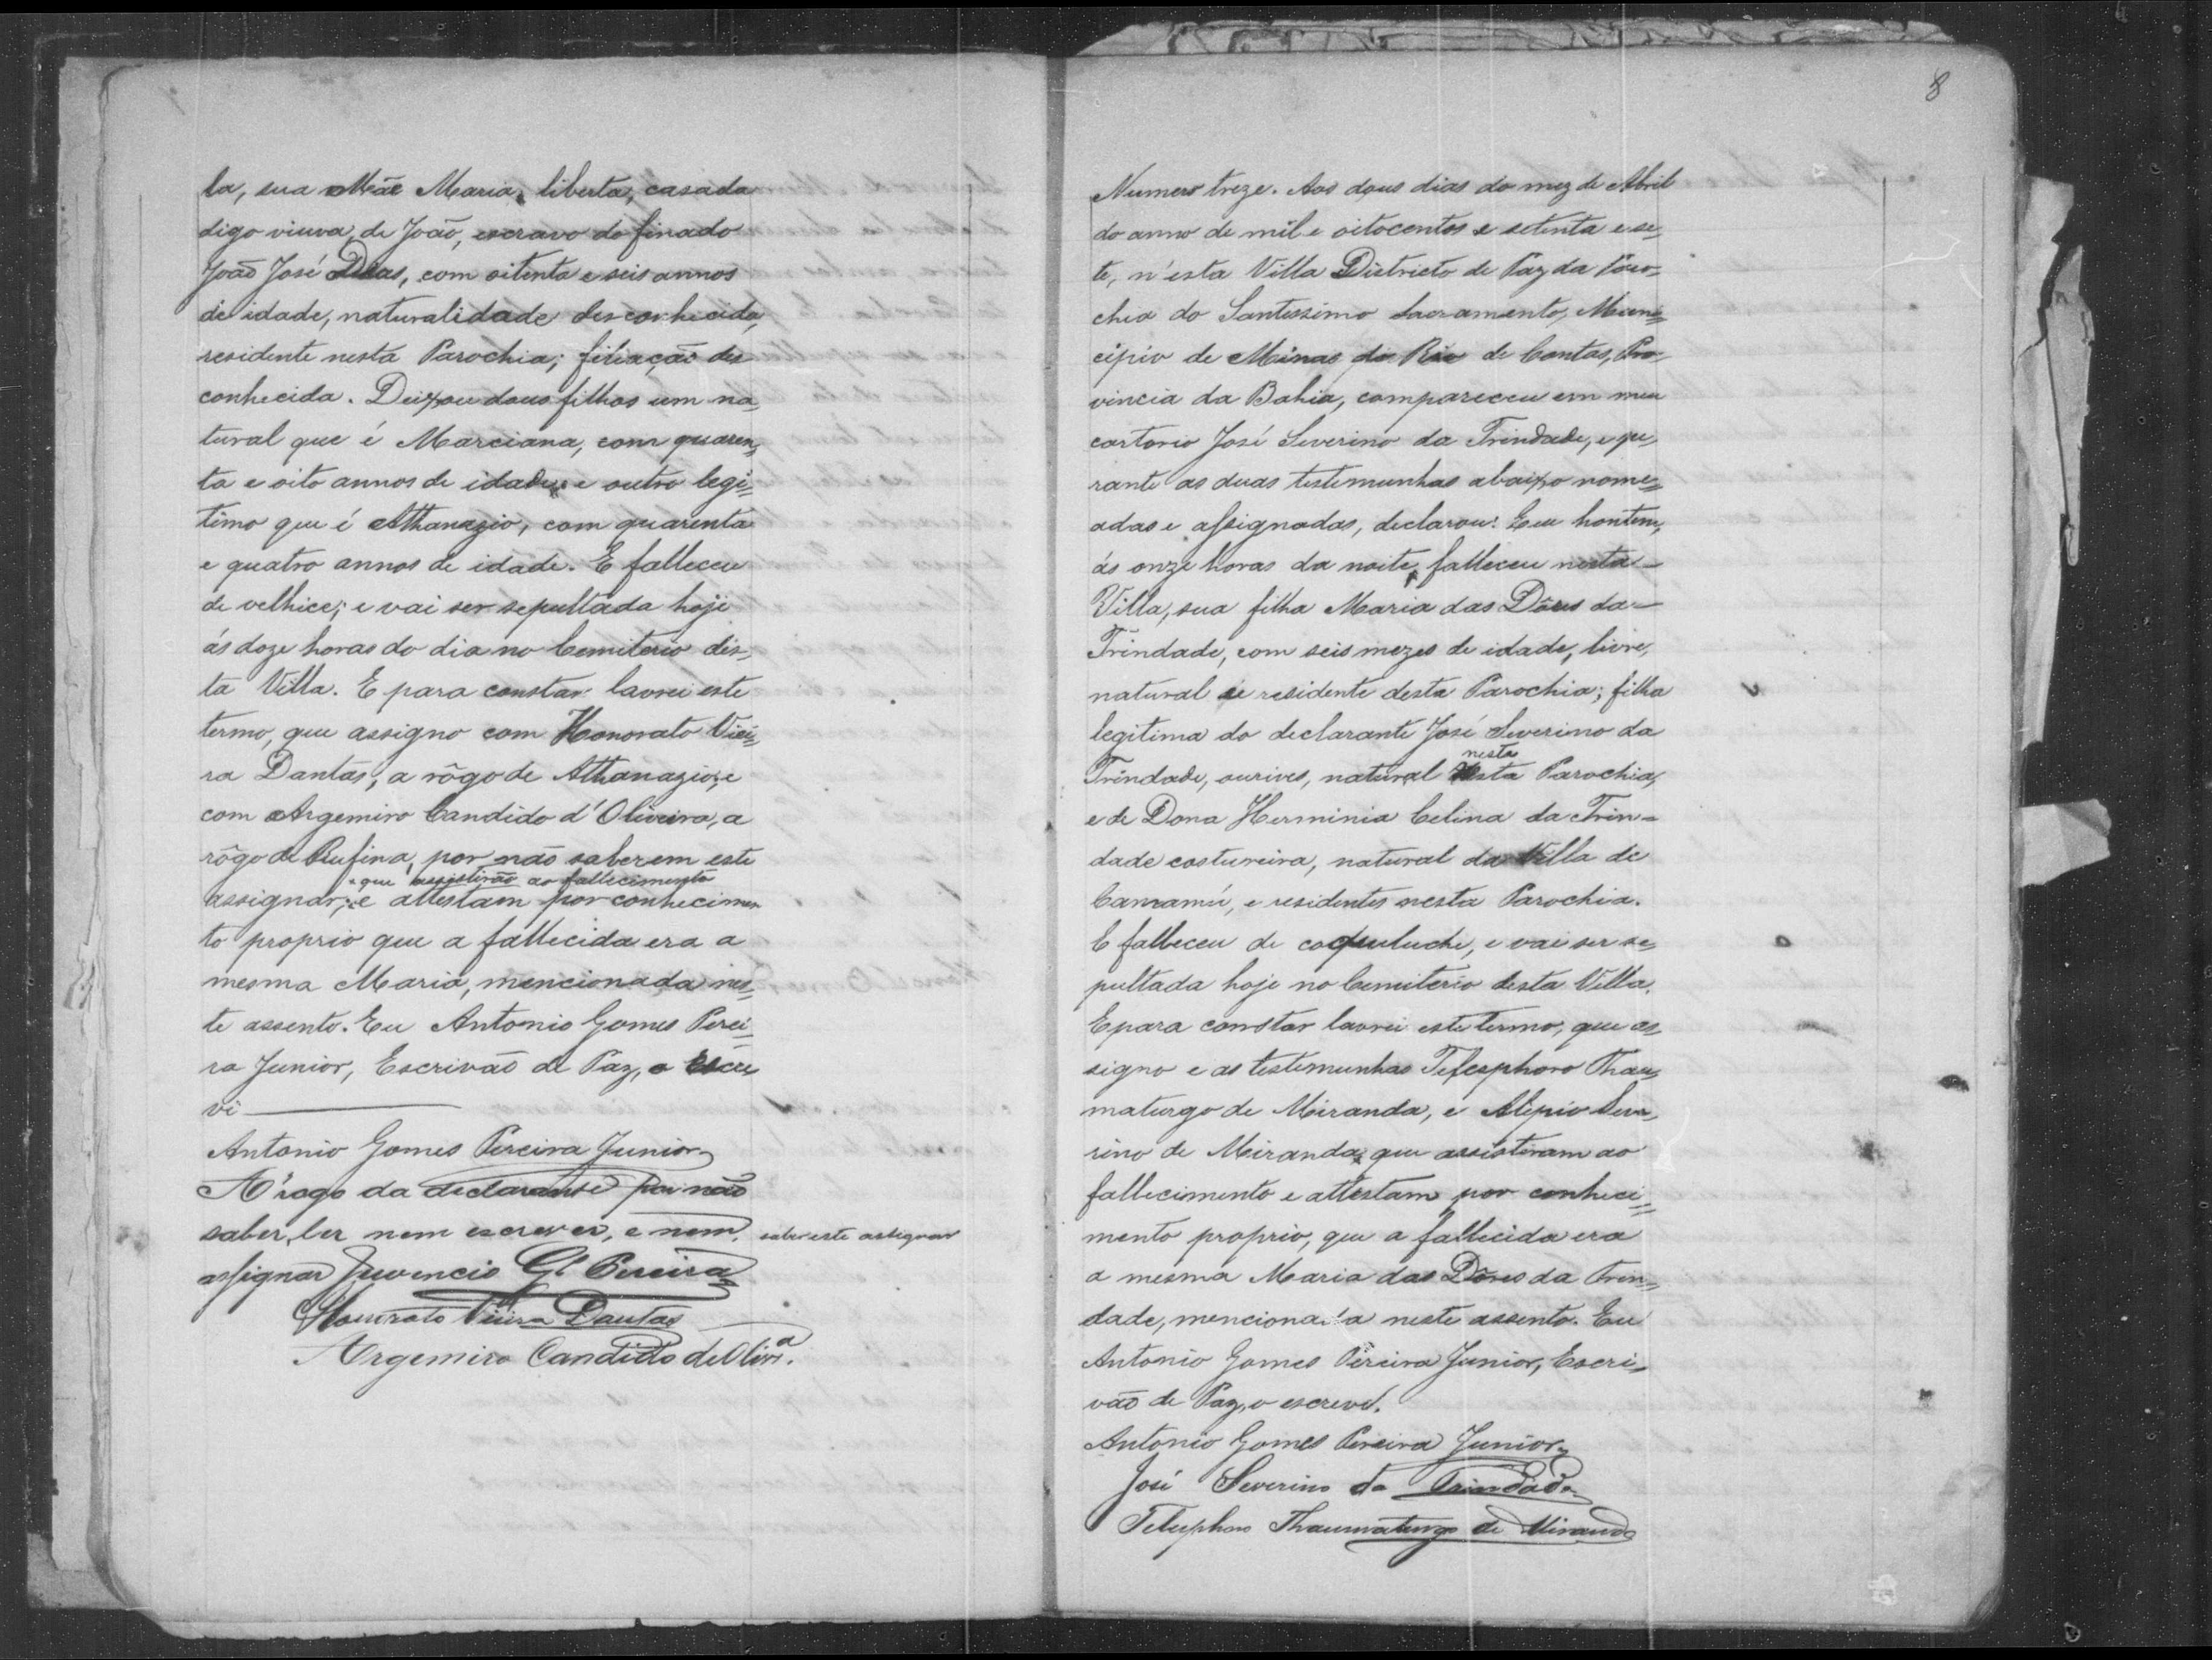 la, sua Mãe Maria, liberta, casada
digo viuva, de João, escravo do finado
João José Dias, com oitenta e seis annos
de idade, naturalidade desconhecida,
residente nesta Parochia; filiação des
conhecida. Deixou dous filhos um na=
tural que é Marciana, com quaren=
ta e oito annos de idade, e outro legi=
timo que é Athanazio, com quarenta
e quatro annos de idade. E falleceu
de velhice; e vai ser sepultada hoje
ás doze horas do dia no Cemiterio des=
ta Villa. E para constar lavrei este
termo, que assigno com Honorato Viei=
ra Dantas, a rôgo de Athanazio, e
com Argemiro Candido d'Oliveira, a
rôgo de Rufina, por não saberem este
que assistirão ao fallecimento
assignar; e attestam por conhecimen
to proprio que a fallecida era a
mesma Maria, mencionada nes=
te assento. Eu Antonio Gomes Perei=
ra Junior, Escrivão de Paz, o escre
vi
Antonio Gomes Pereira Junior
A rogo da declarante por não
saber ler nem escrever, e nem saber este assignar
assignar Juvencio Gs. Pereira
Honorato Vieira Dantas
Argemiro Candido de Olivra.
8
Numero treze. Aos dous dias do mez de Abril
do anno de mil e oitocentos e setenta e se=
te, n'esta Villa Districto de Paz da Paro=
chia do Santissimo Sacramento, Muni=
cipio de Minas do Rio de Contas, Pro=
vincia da Bahia, compareceu em meu
cartorio José Severino da Trindade, e pe=
rante as duas testemunhas abaixo nome=
adas e assignadas, declarou: Que hontem,
ás onze horas da noite, falleceu nesta
Villa, sua filha Maria das Dôres da
Trindade, com seis mezes de idade, livre,
natural e residente desta Parochia; filha
legitima do declarante José Severino da
nesta
Trindade, ourives, natural desta Parochia,
e de Dona Herminia Celina da Trin=
dade costureira, natural da Villa de
Camamú, e residentes nesta Parochia.
E falleceu de coqueluche, e vai ser se=
pultada hoje no Cemiterio desta Villa.
E para constar lavrei este termo, que as=
signo e as testemunhas Telesphoro Thau=
maturgo de Miranda, e Alipio Seve=
rino de Miranda, que assistiram ao
fallecimento e attestam por conheci=
mento proprio, que a fallecida era
a mesma Maria das Dôres da Trin=
dade, mencionada neste assento. Eu
Antonio Gomes Pereira Junior, Escri=
vão de Paz, o escreví.
Antonio Gomes Pereira Junior
José Severino da Trindade
Telesphoro Thaumaturgo de Miranda